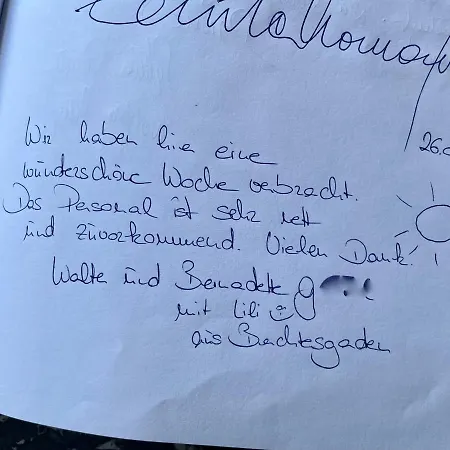 26.
Wir haben hier eine
wunderschöne Woche verbracht.
Das Personal ist sehr nett
und zuvorkommend. Vielen Dank!
Walter und Bernadette
mit Lili
aus Berchtesgaden